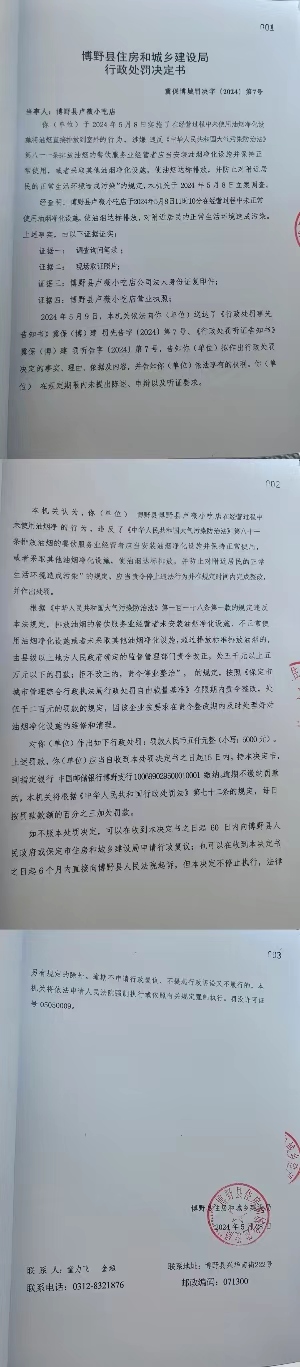 001
博野县住房和城乡建设局
行政处罚决定书
冀保博城罚决字〔2024〕第7号
当事人：博野县卢薇小吃店
你（单位）于2024年5月8日实施了在经营过程中未使用油烟净化设
施将油烟直接排放到室外的行为，涉嫌违反《中华人民共和国大气污染防治法》
第八一条排放油烟的餐饮服务业经营者应当安装油烟净化设施并保持正
常使用，或者采取其他油烟净化措施，使油烟达标排放，并防止对附近居
民的正常生活环境造成污染"的规定，本机关于2024年5月8日立案调查。
经查明，博野县卢薇小吃店于2024年5月8日11时10分在经营过程中未正常
使用油烟净化设施，使油烟达标排放，对附近居民的正常生活环境造成污染。
上述事实，有以下证据证实：
证据一：调查询问笔录；
证据二：现场取证照片；
证据三：博野县卢薇小吃店公司法人身份证复印件；
证据四：博野县卢薇小吃店营业执照；
2024年5月9日，本机关依法向你（单位）送达了《行政处罚事先
告知书》冀保（博）建 罚先告字〔2024〕第7号、《行政处罚听证告知书》
冀保（博）建 罚听告字〔2024〕第7号，告知你（单位）拟作出行政处罚
决定的事实、理由、依据及内容，并告知你（单位）依法享有的权利。你（单
位）在规定期限内未提出陈述、申辩以及听证要求。
002
本机关认为，你（单位）博野县博野县卢薇小吃店在经营过程中
未使用油烟净 的行为，违反了《中华人民共和国大气污染防治法》第八十一
条排放油烟的餐饮服务业经营者应当安装油烟净化设施并保持正常使用，
或者采取其他油烟净化措施，使油烟达标排放，并防止对附近居民的正常
生活环境造成污染"的规定，应当责令停止违法行为并在规定时间内完成整改，
并作出处罚。
根据《中华人民共和国大气污染防治法》第一百一十八条第一款的规定违反
本法规定，排放油烟的餐饮服务业经营者未安装油烟净化设施、不正常使
用油烟净化设施或者未采取其他油烟净化措施，超过排放标准排放油烟的，
由县级以上地方人民政府确定的监督管理部门责令改正，处五千元以上五
万元以下的罚款；拒不改正的，责令停业整治"。的规定，按照《保定市
城市管理综合行政执法局行政处罚自由裁量基准》在限期内责令整改，处
伍千二百元的罚款的规定，因该企业按要求在责令整改期内及时处理好对
油烟净化设施的维修和清理。
对你（单位）作出如下行政处罚：罚款人民币五仟元整（小写：5000元）。
上述罚款，你（单位）应当自收到本处罚决定书之日起15日内，持本决定书，
到指定银行 中国邮储银行博野支行 缴纳。逾期不缴纳罚款
的，本机关将根据《中华人民共和国行政处罚法》第七十二条的规定，每日
按罚款数额的百分之三加处罚款。
如不服本处罚决定，可以在收到本决定书之日起60日内向博野县人
民政府或保定市住房和城乡建设局申请行政复议；也可以在收到本决定书
之日起6个月内直接向博野县人民法院起诉，但本决定不停止执行，法律
003
另有规定的除外。逾期不申请行政复议、不提起行政诉讼又不履行的，本
机关将依法申请人民法院强制执行或依照有关规定强制执行。罚没许可证
号05050009。
博野县住房和城乡建设局
2024年5月
联系人：童力飞
联系地址：博野县兴华南街222号
联系电话：0312-8321876
邮政编码：071300